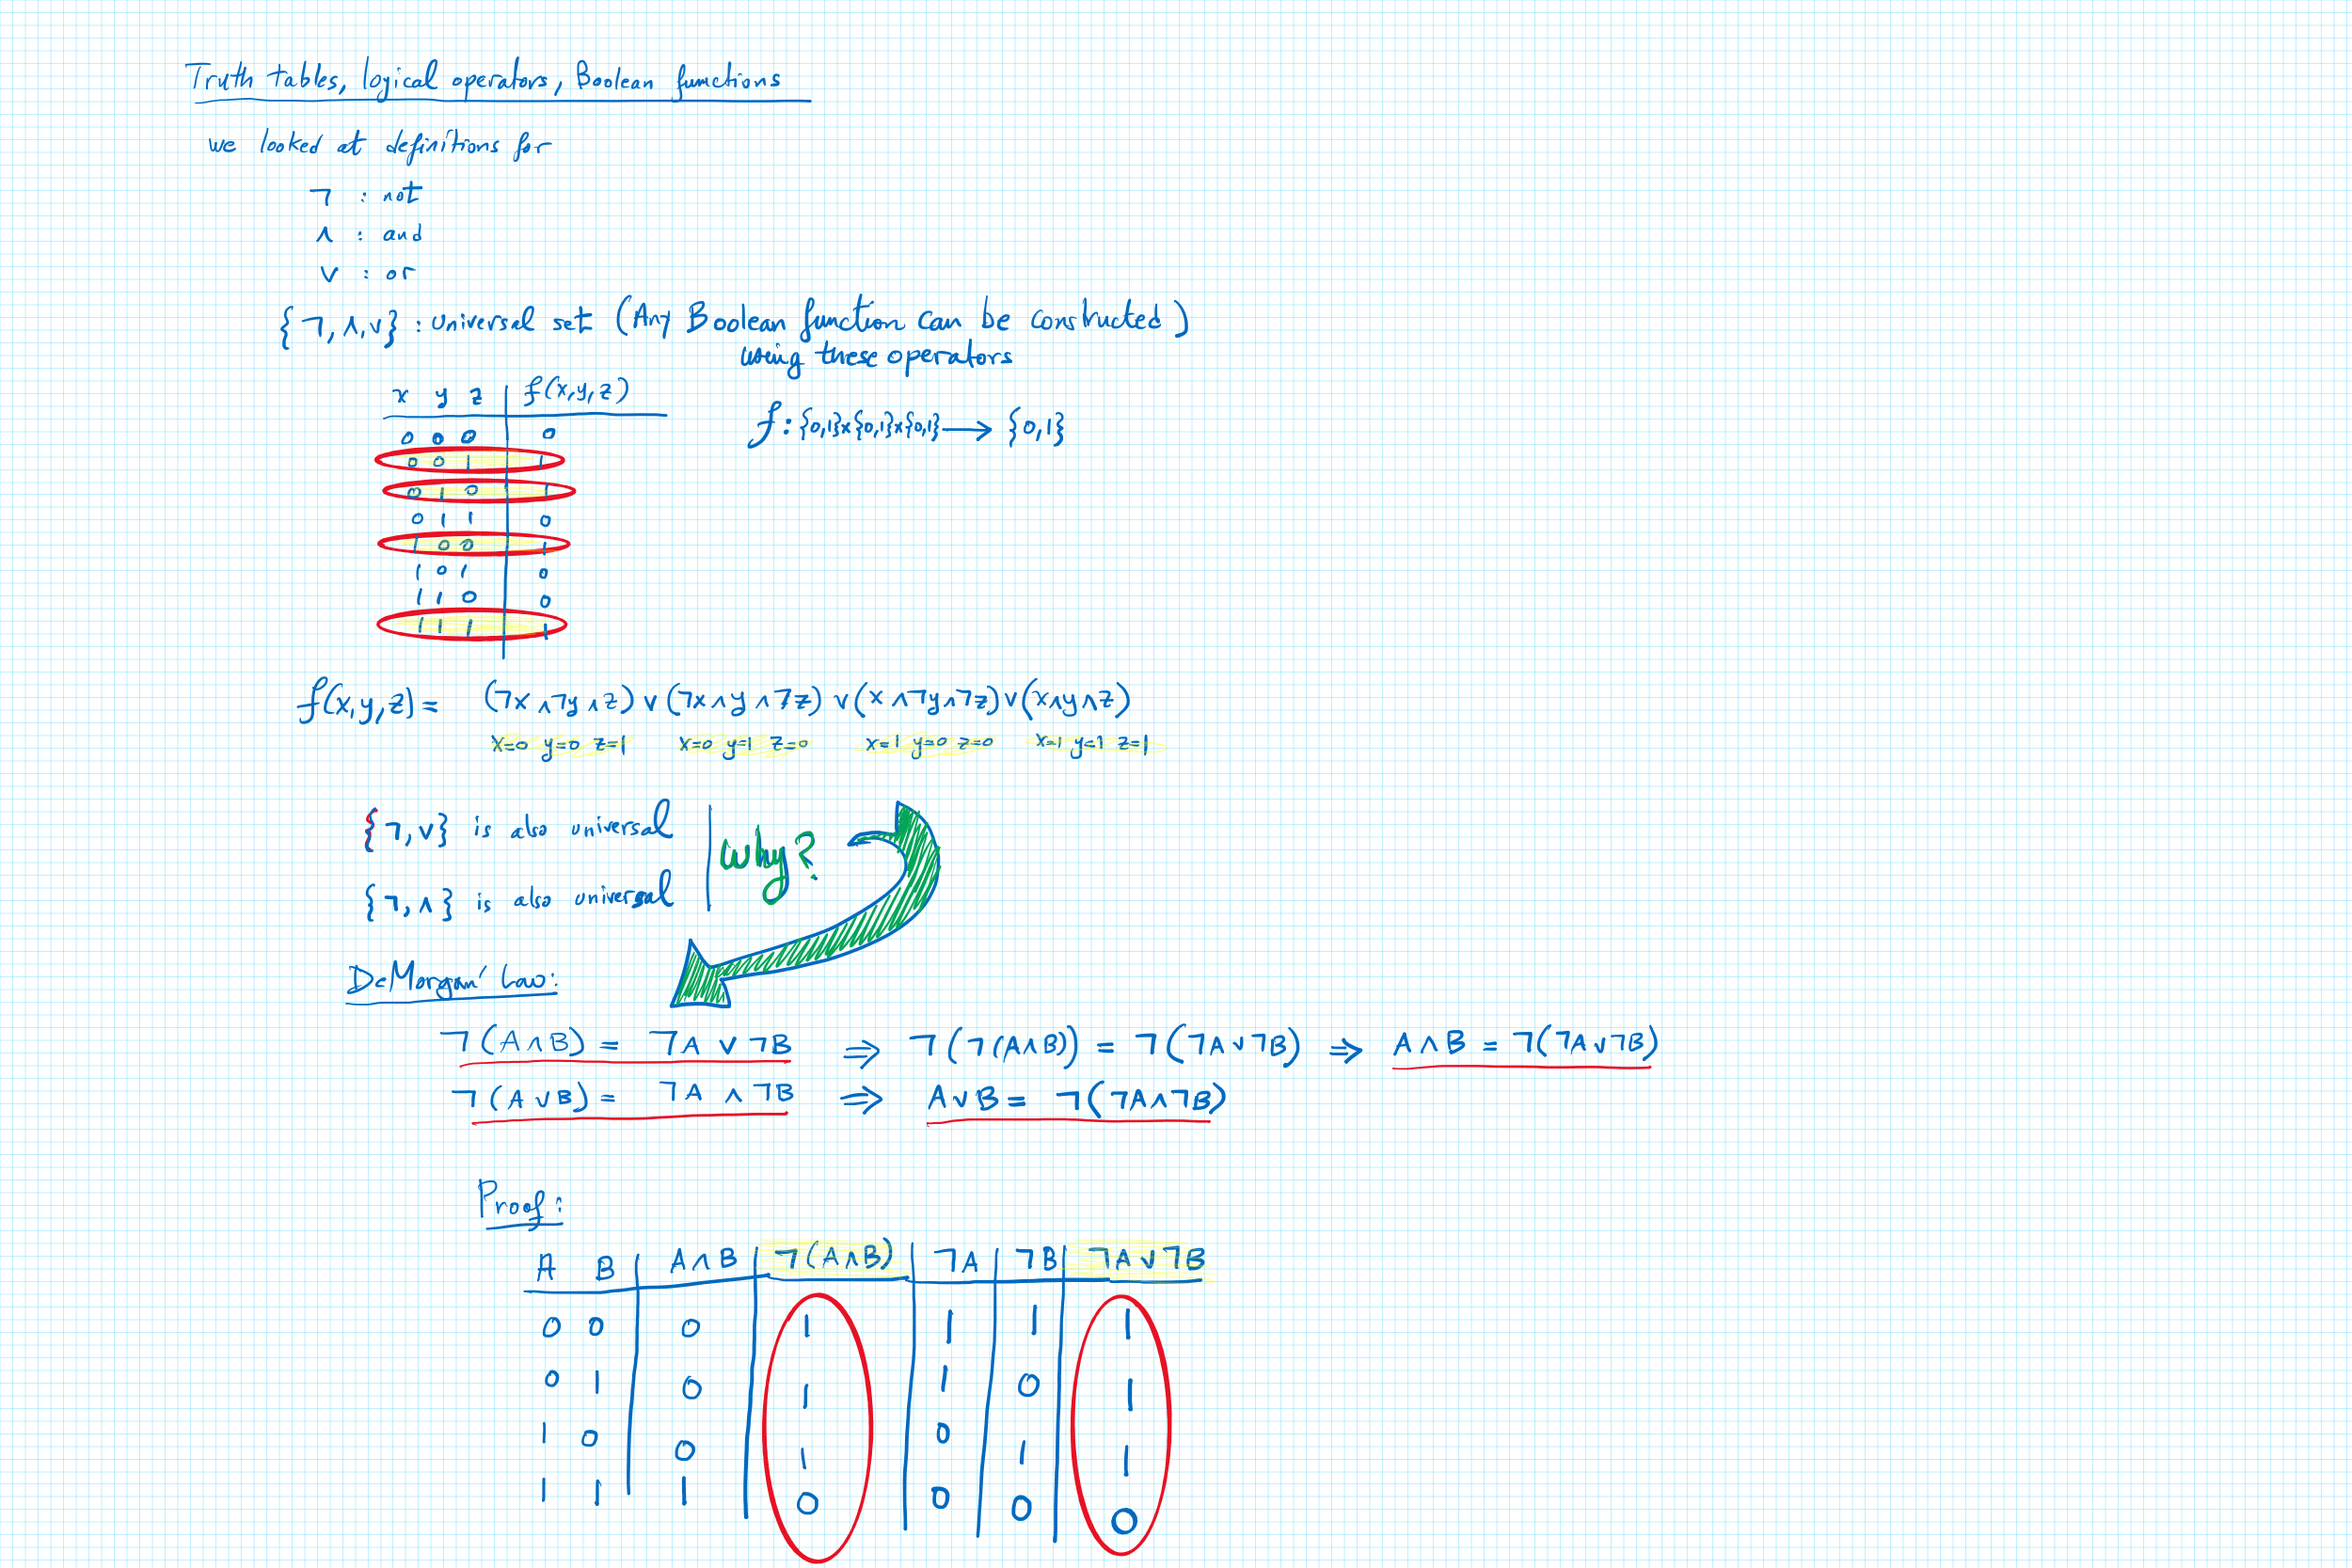 Truth tables, logical operators, Boolean functions
we looked at definitions for
¬ : not
∧ : and
∨ : or
{¬,∧,∨} : universal set (Any Boolean function can be constructed)
using these operators
x y z f(x,y,z)
f : {0,1}×{0,1}×{0,1} ⟶ {0,1}
0 0 0 0
0 0 1 1
0 1 0 1
0 1 1 0
1 0 0 1
1 0 1 0
1 1 0 0
1 1 1 1
f(x,y,z) = (¬x ∧ ¬y ∧ z) ∨ (¬x ∧ y ∧ ¬z) ∨ (x ∧ ¬y ∧ ¬z) ∨ (x ∧ y ∧ z)
x=0 y=0 z=1 x=0 y=1 z=0 x=1 y=0 z=0 x=1 y=1 z=1
{¬,∨} is also universal
why?
{¬,∧} is also universal
DeMorgan' Law:
¬(A∧B) = ¬A ∨ ¬B ⇒ ¬(¬(A∧B)) = ¬(¬A∨¬B) ⇒ A∧B = ¬(¬A∨¬B)
¬(A∨B) = ¬A ∧ ¬B ⇒ A∨B = ¬(¬A∧¬B)
Proof:
A B A∧B ¬(A∧B) ¬A ¬B ¬A∨¬B
0 0 0 1 1 1 1
0 1 0 1 1 0 1
1 0 0 1 0 1 1
1 1 1 0 0 0 0